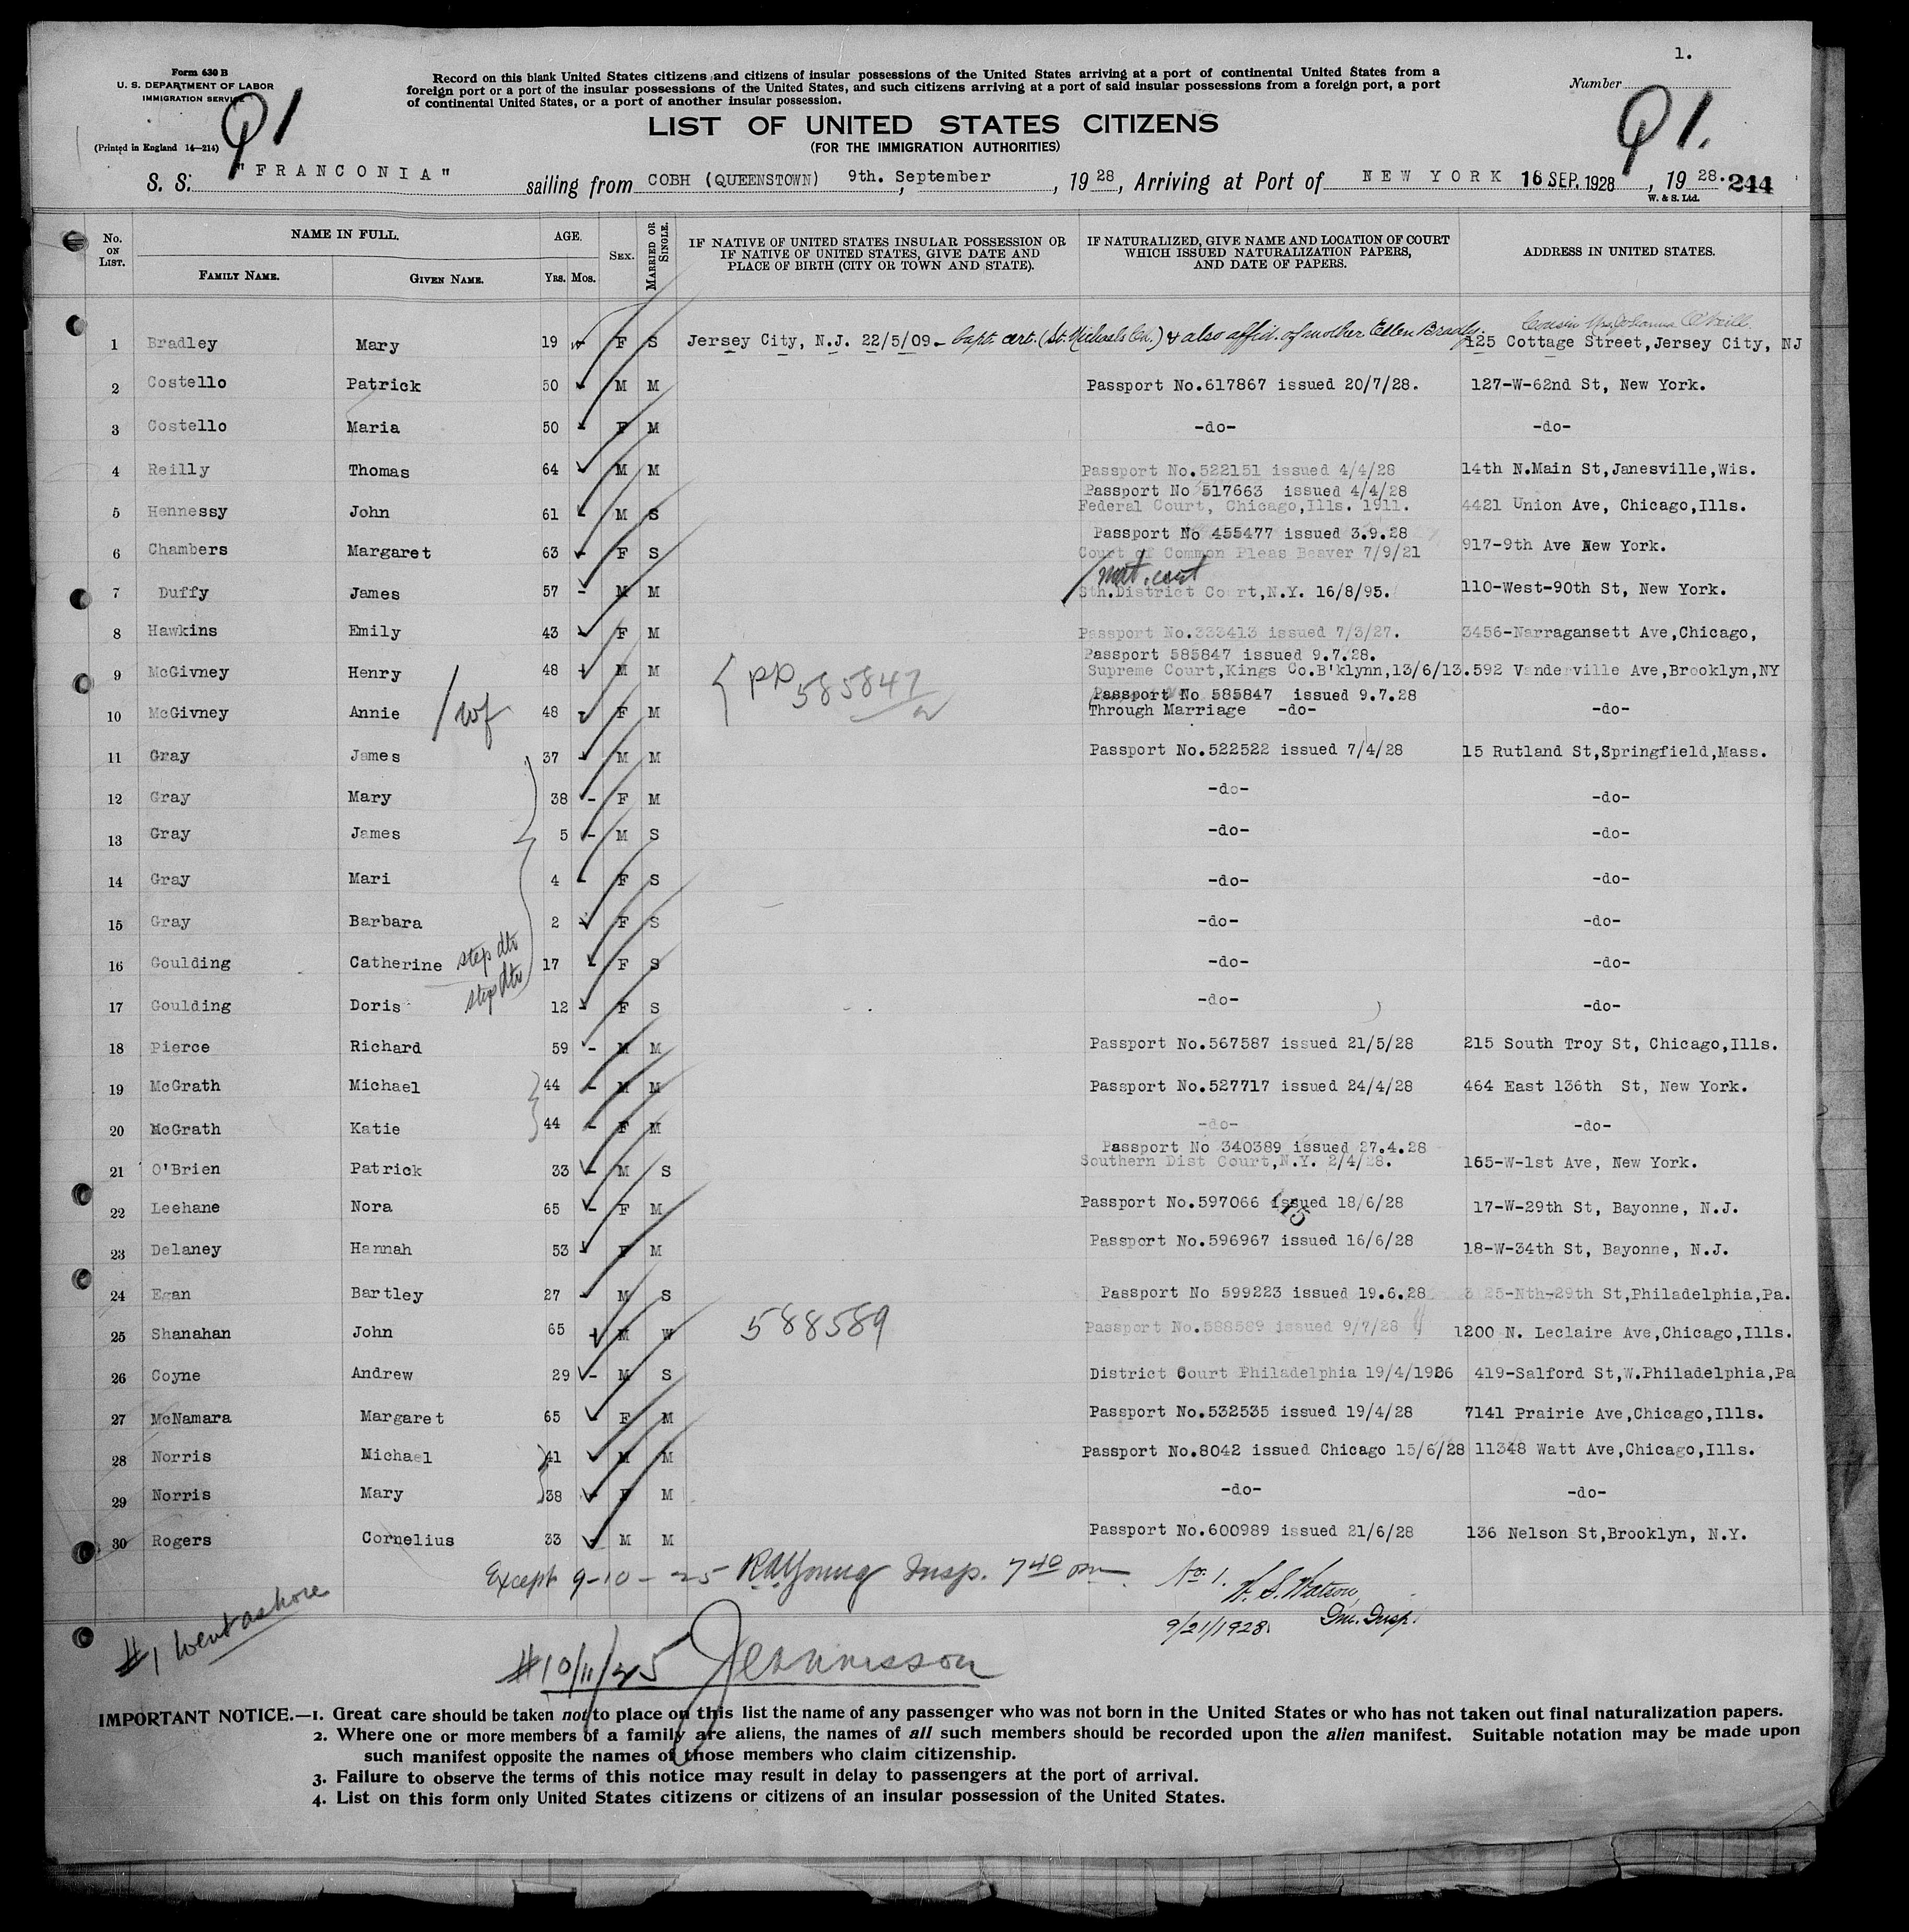 1.
Form 630 B
U. S. DEPARTMENT OF LABOR
IMMIGRATION SERVICE
(Printed in England 14—214)
Q1
Record on this blank United States citizens and citizens of insular possessions of the United States arriving at a port of continental United States from a
foreign port or a port of the insular possessions of the United States, and such citizens arriving at a port of said insular possessions from a foreign port, a port
of continental United States, or a port of another insular possession.
Number
Q1.
LIST OF UNITED STATES CITIZENS
(FOR THE IMMIGRATION AUTHORITIES)
S. S. "FRANCONIA" sailing from COBH (QUEENSTOWN) 9th. September, 1928, Arriving at Port of NEW YORK 16 SEP. 1928, 1928. 244
W. & S. Ltd.
No. ON LIST. NAME IN FULL. AGE. SEX. MARRIED OR SINGLE. IF NATIVE OF UNITED STATES INSULAR POSSESSION OR IF NATIVE OF UNITED STATES, GIVE DATE AND PLACE OF BIRTH (CITY OR TOWN AND STATE). IF NATURALIZED, GIVE NAME AND LOCATION OF COURT WHICH ISSUED NATURALIZATION PAPERS, AND DATE OF PAPERS. ADDRESS IN UNITED STATES.
FAMILY NAME. GIVEN NAME. Yrs. Mos.
Cousin Mrs Johanna O'Neill.
1 Bradley Mary 19 F S Jersey City, N.J. 22/5/09 - bapt. cert. (St. Michaels Ch.) & also affid. of mother Ellen Bradley. 125 Cottage Street,Jersey City, NJ
2 Costello Patrick 50 M M Passport No.617867 issued 20/7/28. 127-W-62nd St, New York.
3 Costello Maria 50 F M -do- -do-
4 Reilly Thomas 64 M M Passport No.522151 issued 4/4/28 14th N.Main St,Janesville,Wis.
Passport No 517663 issued 4/4/28
5 Hennessy John 61 M S Federal Court, Chicago,Ills. 1911. 4421 Union Ave, Chicago,Ills.
Passport No 455477 issued 3.9.28
6 Chambers Margaret 63 F S Court of Common Pleas Beaver 7/9/21 917-9th Ave New York.
nat. cert
7 Duffy James 57 - M M Sth.District Court,N.Y. 16/8/95. 110-West-90th St, New York.
8 Hawkins Emily 43 F M Passport No.333413 issued 7/3/27. 3456-Narragansett Ave,Chicago,
Passport 585847 issued 9.7.28.
9 McGivney Henry 48 M M PP 585847 Supreme Court,Kings Co.B'klynn,13/6/13. 592 Vanderville Ave,Brooklyn,NY
Passport No 585847 issued 9.7.28
10 McGivney Annie wf 48 F M Through Marriage -do- -do-
11 Gray James 37 M M Passport No.522522 issued 7/4/28 15 Rutland St,Springfield,Mass.
12 Gray Mary 38 - F M -do- -do-
13 Gray James 5 - M S -do- -do-
14 Gray Mari 4 - F S -do- -do-
15 Gray Barbara 2 F S -do- -do-
16 Goulding Catherine step dtr 17 F S -do- -do-
17 Goulding Doris step dtr 12 - F S -do- -do-
18 Pierce Richard 59 - M M Passport No.567587 issued 21/5/28 215 South Troy St, Chicago,Ills.
19 McGrath Michael 44 - M M Passport No.527717 issued 24/4/28 464 East 136th St, New York.
20 McGrath Katie 44 - F M -do- -do-
Passport No 340389 issued 27.4.28
21 O'Brien Patrick 33 - M S Southern Dist Court,N.Y. 2/4/28. 165-W-1st Ave, New York.
22 Leehane Nora 65 - F M Passport No.597066 issued 18/6/28 17-W-29th St, Bayonne, N.J.
23 Delaney Hannah 53 F M Passport No.596967 issued 16/6/28 18-W-34th St, Bayonne, N.J.
24 Egan Bartley 27 - M S Passport No 599223 issued 19.6.28 25-Nth-29th St,Philadelphia,Pa.
25 Shanahan John 65 M W 588589 Passport No.588589 issued 9/7/28 1200 N. Leclaire Ave,Chicago,Ills.
26 Coyne Andrew 29 - M S District Court Philadelphia 19/4/1926 419-Salford St,W.Philadelphia,Pa
27 McNamara Margaret 65 F M Passport No.532535 issued 19/4/28 7141 Prairie Ave,Chicago,Ills.
28 Norris Michael 41 M M Passport No.8042 issued Chicago 15/6/28 11348 Watt Ave,Chicago,Ills.
29 Norris Mary 38 F M -do- -do-
30 Rogers Cornelius 33 M M Passport No.600989 issued 21/6/28 136 Nelson St,Brooklyn, N.Y.
Except 9-10-25 R.W. Young Insp. 7 40 pm
No. 1. W. S. Watson,
Imm. Insp.
9/21/1928.
#1 Went ashore
#10/11/25
IMPORTANT NOTICE.—1. Great care should be taken not to place on this list the name of any passenger who was not born in the United States or who has not taken out final naturalization papers.
2. Where one or more members of a family are aliens, the names of all such members should be recorded upon the alien manifest. Suitable notation may be made upon
such manifest opposite the names of those members who claim citizenship.
3. Failure to observe the terms of this notice may result in delay to passengers at the port of arrival.
4. List on this form only United States citizens or citizens of an insular possession of the United States.